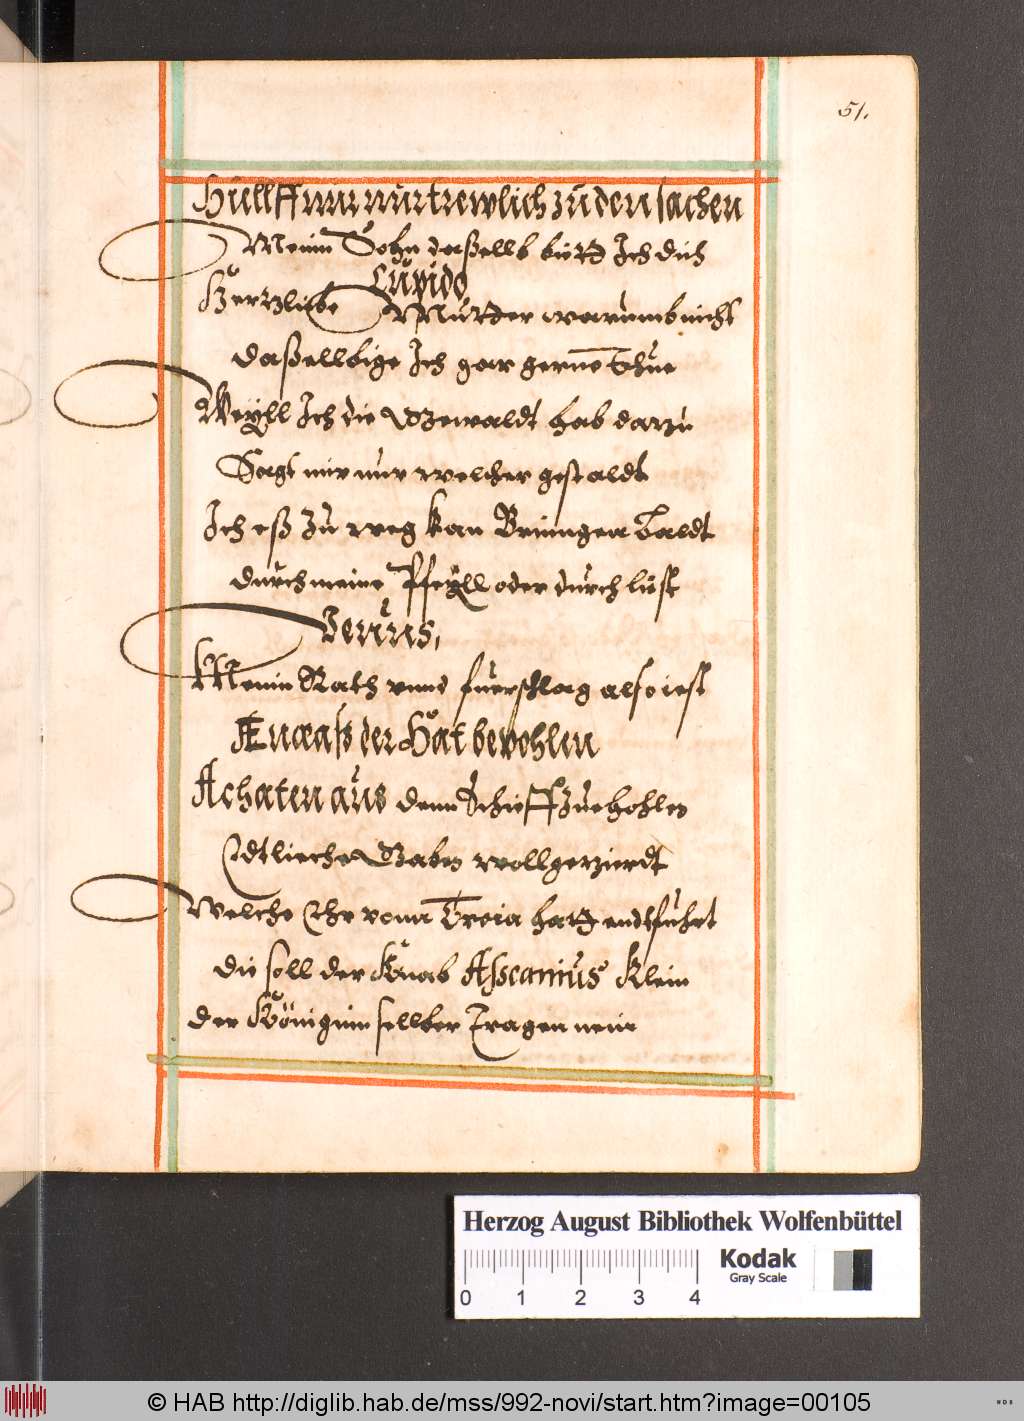 51.
Hüllff mir nur trewlich zu den sachen
Meinn Sohn daßellb bitt Ich dich
Cupido
Hertzliebe Mutter warumb nicht
daßellbige Ich gar gernne thue
Weyll Ich die Gewaldt hab darzu
Sagt mir nur welcher gestaldt
Ich eß zu weg kan Brinngen baldt
durch meine Pfeyll oder durch lüst
Venus,
Meinn Rath vnnd fuerschlag also iest
Æneaß der Hat bevohlen
Achaten aus denn Schieff zue hohlen
Edtlieche Gaben wollgerzierdt
Welche Ehr vonn Troia hatt endtfuhrt
die soll der Knab Ascanius klein
der Königinn sellber Tragen nein
Herzog August Bibliothek Wolfenbüttel
Kodak
Gray Scale
0 1 2 3 4
© HAB http://diglib.hab.de/mss/992-novi/start.htm?image=00105